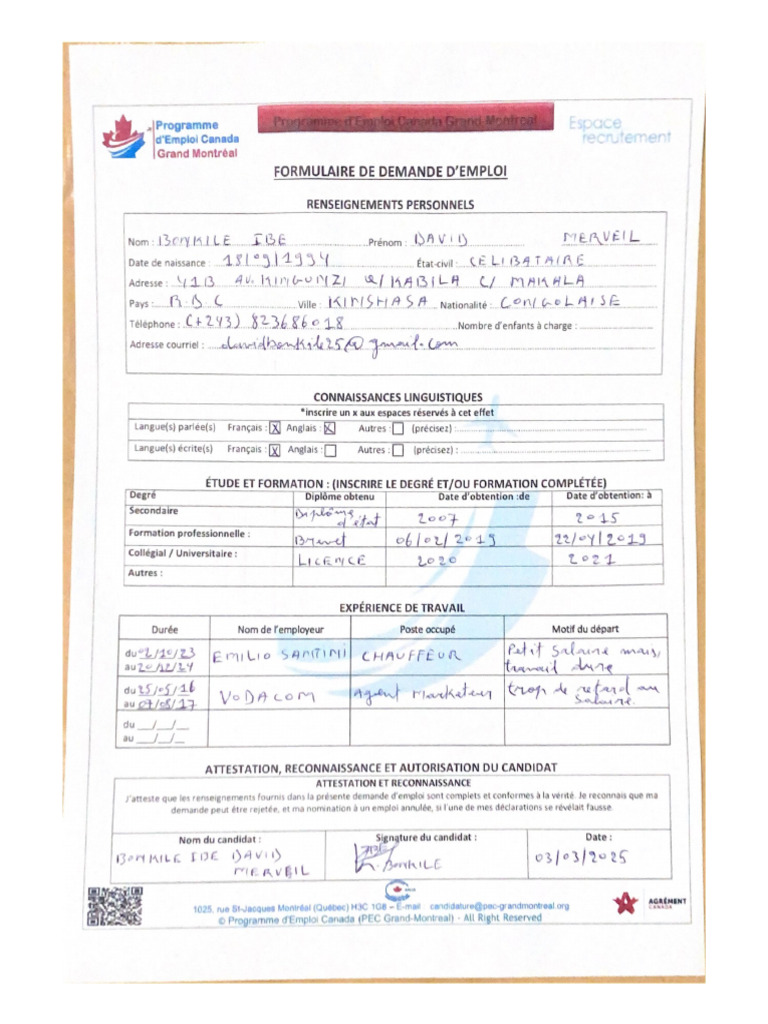 Programme
d'Emploi Canada
Grand Montréal
Programme d'Emploi Canada Grand-Montreal
Espace
recrutement
FORMULAIRE DE DEMANDE D'EMPLOI
RENSEIGNEMENTS PERSONNELS
Nom : BONKILE IBE Prénom : DAVID MERVEIL
Date de naissance : 18/09/1994 État-civil : CELIBATAIRE
Adresse : 41B AV. KINGUNZI Q/KABILA C/ MAKALA
Pays : R.D.C Ville : KINSHASA Nationalité : CONGOLAISE
Téléphone : (+243) 823686018 Nombre d'enfants à charge :
Adresse courriel : davidbonkile25@gmail.com
CONNAISSANCES LINGUISTIQUES
*inscrire un x aux espaces réservés à cet effet
Langue(s) parlée(s) Français : X Anglais : X Autres : (précisez) :
Langue(s) écrite(s) Français : X Anglais : Autres : (précisez) :
ÉTUDE ET FORMATION : (INSCRIRE LE DEGRÉ ET/OU FORMATION COMPLÉTÉE)
Degré Diplôme obtenu Date d'obtention :de Date d'obtention: à
Secondaire Diplôme d'état 2007 2015
Formation professionnelle : Brevet 06/02/2019 22/04/2019
Collégial / Universitaire : LICENCE 2020 2021
Autres :
EXPÉRIENCE DE TRAVAIL
Durée Nom de l'employeur Poste occupé Motif du départ
du 02/10/23 EMILIO SANTINI CHAUFFEUR Petit Salaire mais,
au 20/12/24 travail dure
du 25/05/16 VODACOM Agent Marketeur trop de retard au
au 07/08/17 Salaire.
du __/__/__
au __/__/__
ATTESTATION, RECONNAISSANCE ET AUTORISATION DU CANDIDAT
ATTESTATION ET RECONNAISSANCE
J'atteste que les renseignements fournis dans la présente demande d'emploi sont complets et conformes à la vérité. Je reconnais que ma
demande peut être rejetée, et ma nomination à un emploi annulée, si l'une de mes déclarations se révélait fausse.
Nom du candidat : Signature du candidat : Date :
BONKILE IBE DAVID
MERVEIL
BONKILE
03/03/2025
1025, rue St-Jacques Montréal (Québec) H3C 1G8 – E-mail candidature@pec-grandmontreal.org
© Programme d'Emploi Canada (PEC Grand-Montreal) - All Right Reserved
AGRÉMENT
CANADA